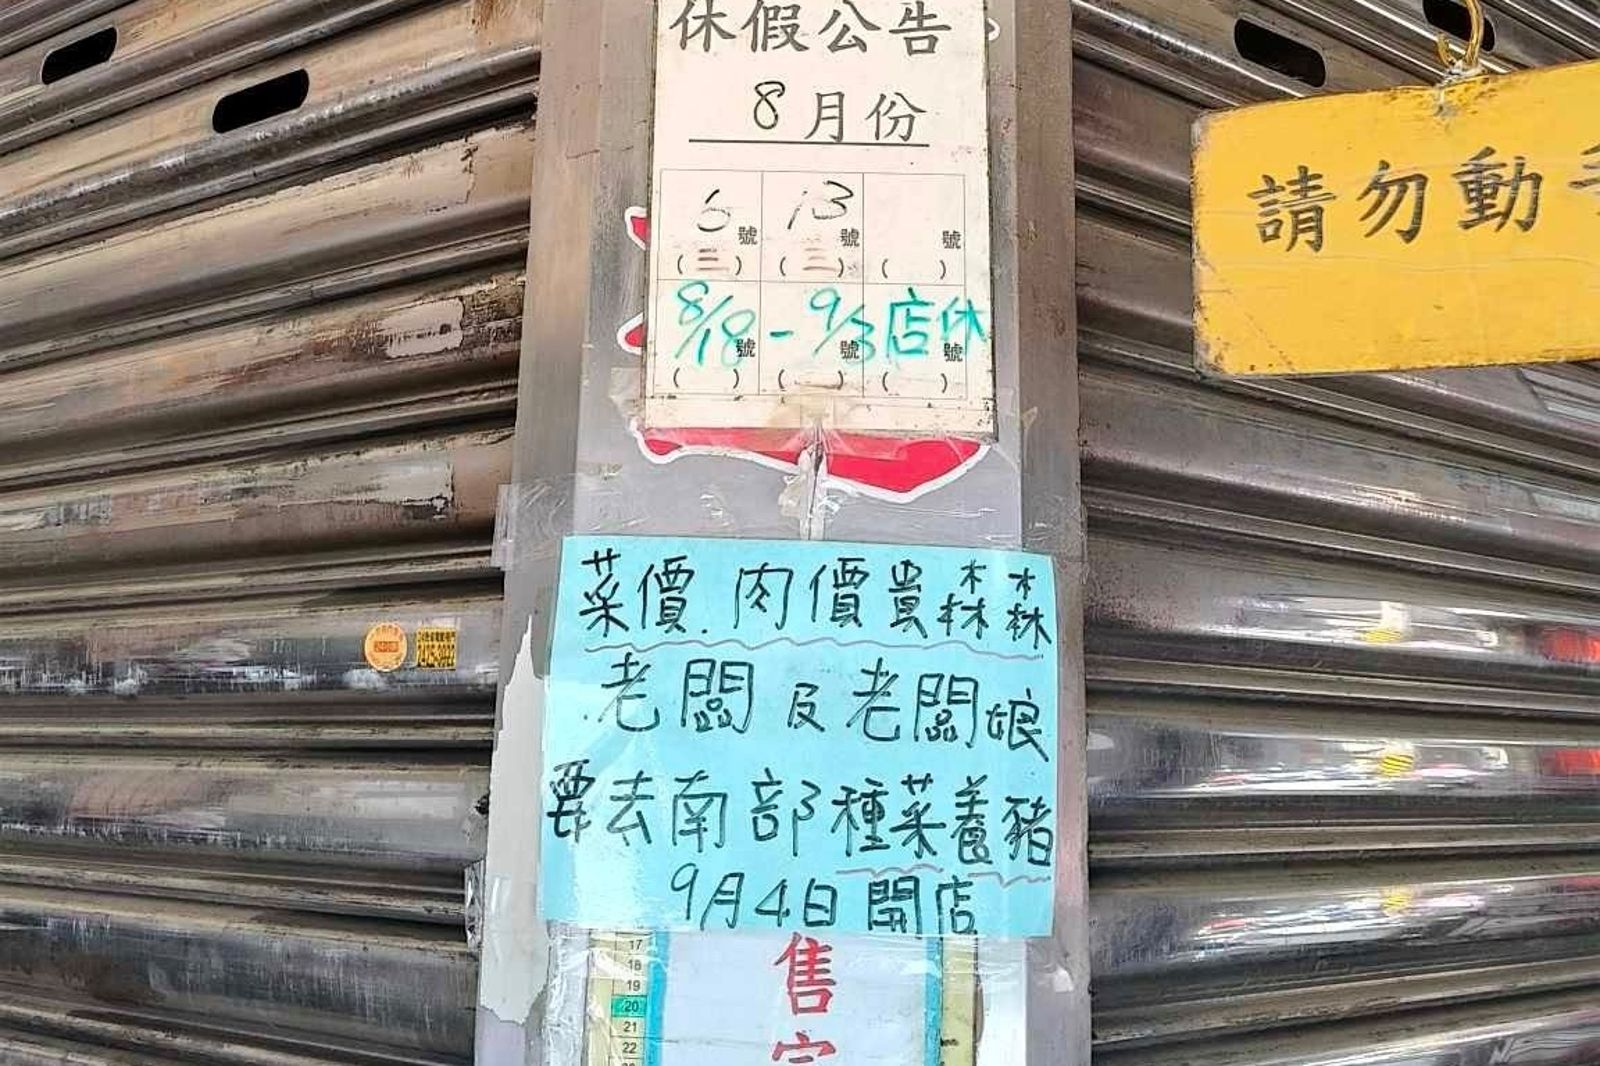 休假公告
8月份
6號 13號 號
(三) (三) ( )
8/18-9/3店休
號 號 號
( ) ( ) ( )
請勿動手
菜價.肉價貴森森
老闆及老闆娘
要去南部種菜養豬
9月4日開店
售完
17
18
19
20
21
22
2425-3922